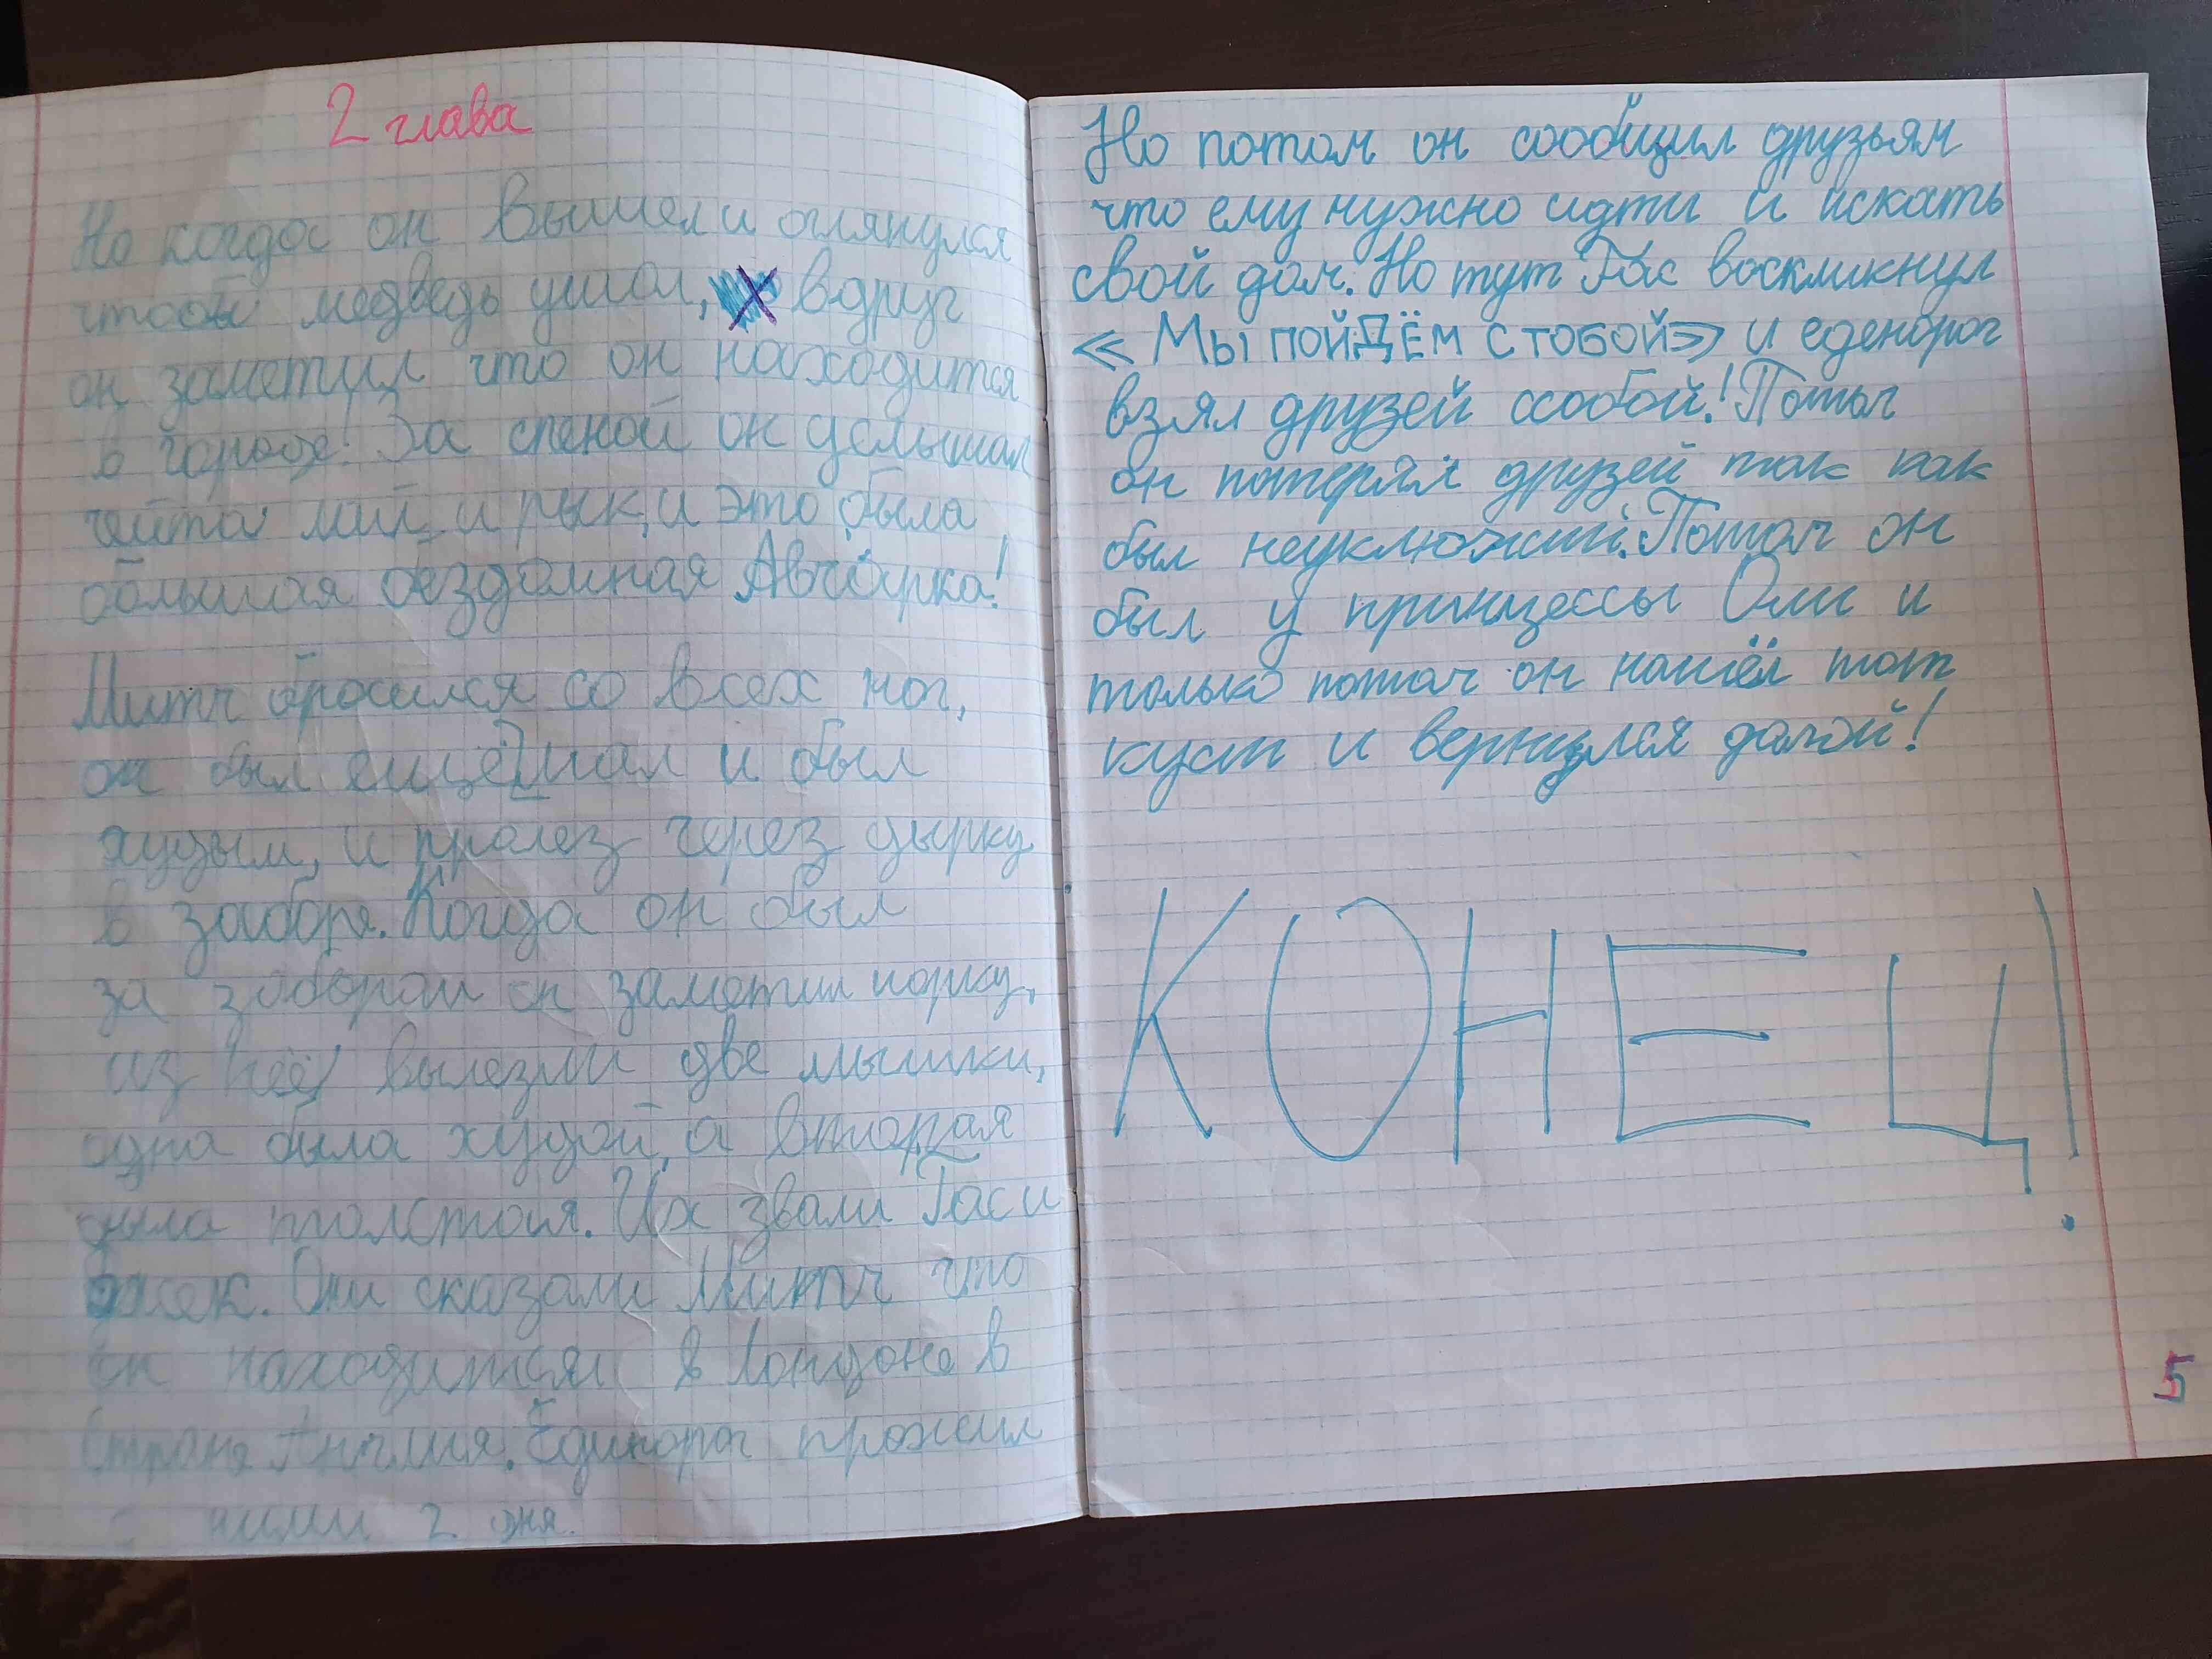 2 глава
Но когда он вышел и оглянулся
чтобы медведь ушол, вдруг
он заметил что он находится
в городе! За спеной он услышал
чейто и рык, и это была
большая бездомная Авчарка!
Митч бросился со всех ног,
он был ещё мал и был
худым, и пролез через дырку
в заборе. Когда он был
за забором он заметил норку,
из неё вылезли две мышки,
одна была худой, а вторая
была толстая. Их звали Гас и
Жек. Они сказали Митч что
он находится в Лондоне в
Стране Англия. Единорог прожил
с ними 2 дня.
Но потом он сообщил друзьям
что ему нужно идти и искать
свой дом. Но тут Гас воскликнул
«Мы пойдём с тобой» и еденорог
взял друзей ссобой! Потом
он потерял друзей так как
был неуклюжий. Потом он
был у принцессы Оли и
только потом он нашёл тот
куст и вернулся домой!
КОНЕЦ!
5